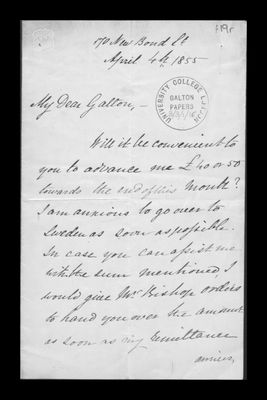 f19r
170 New Bond St
April 4th 1855
UNIVERSITY COLLEGE LONDON
GALTON
PAPERS
My Dear Galton,-
Will it be convenient to
you to advance me £40 or 50
towards the end of this month?
I am anxious to go over to
Sweden as soon as possible.
In case you can assist me
with the sum mentioned, I
would give Mr Bishop orders
to hand you over the amount
as soon as my remittance
arrives,